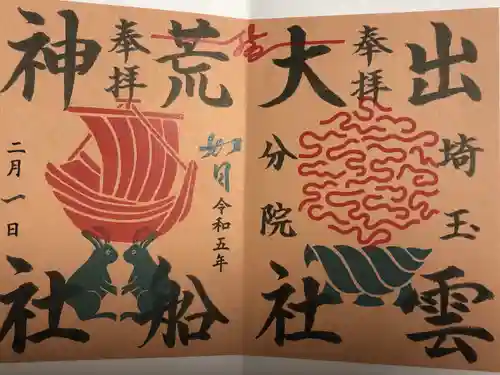 出雲
奉拝
埼玉
大社
分院
結
荒船
奉拝
如月
令和五年
神社
二月一日